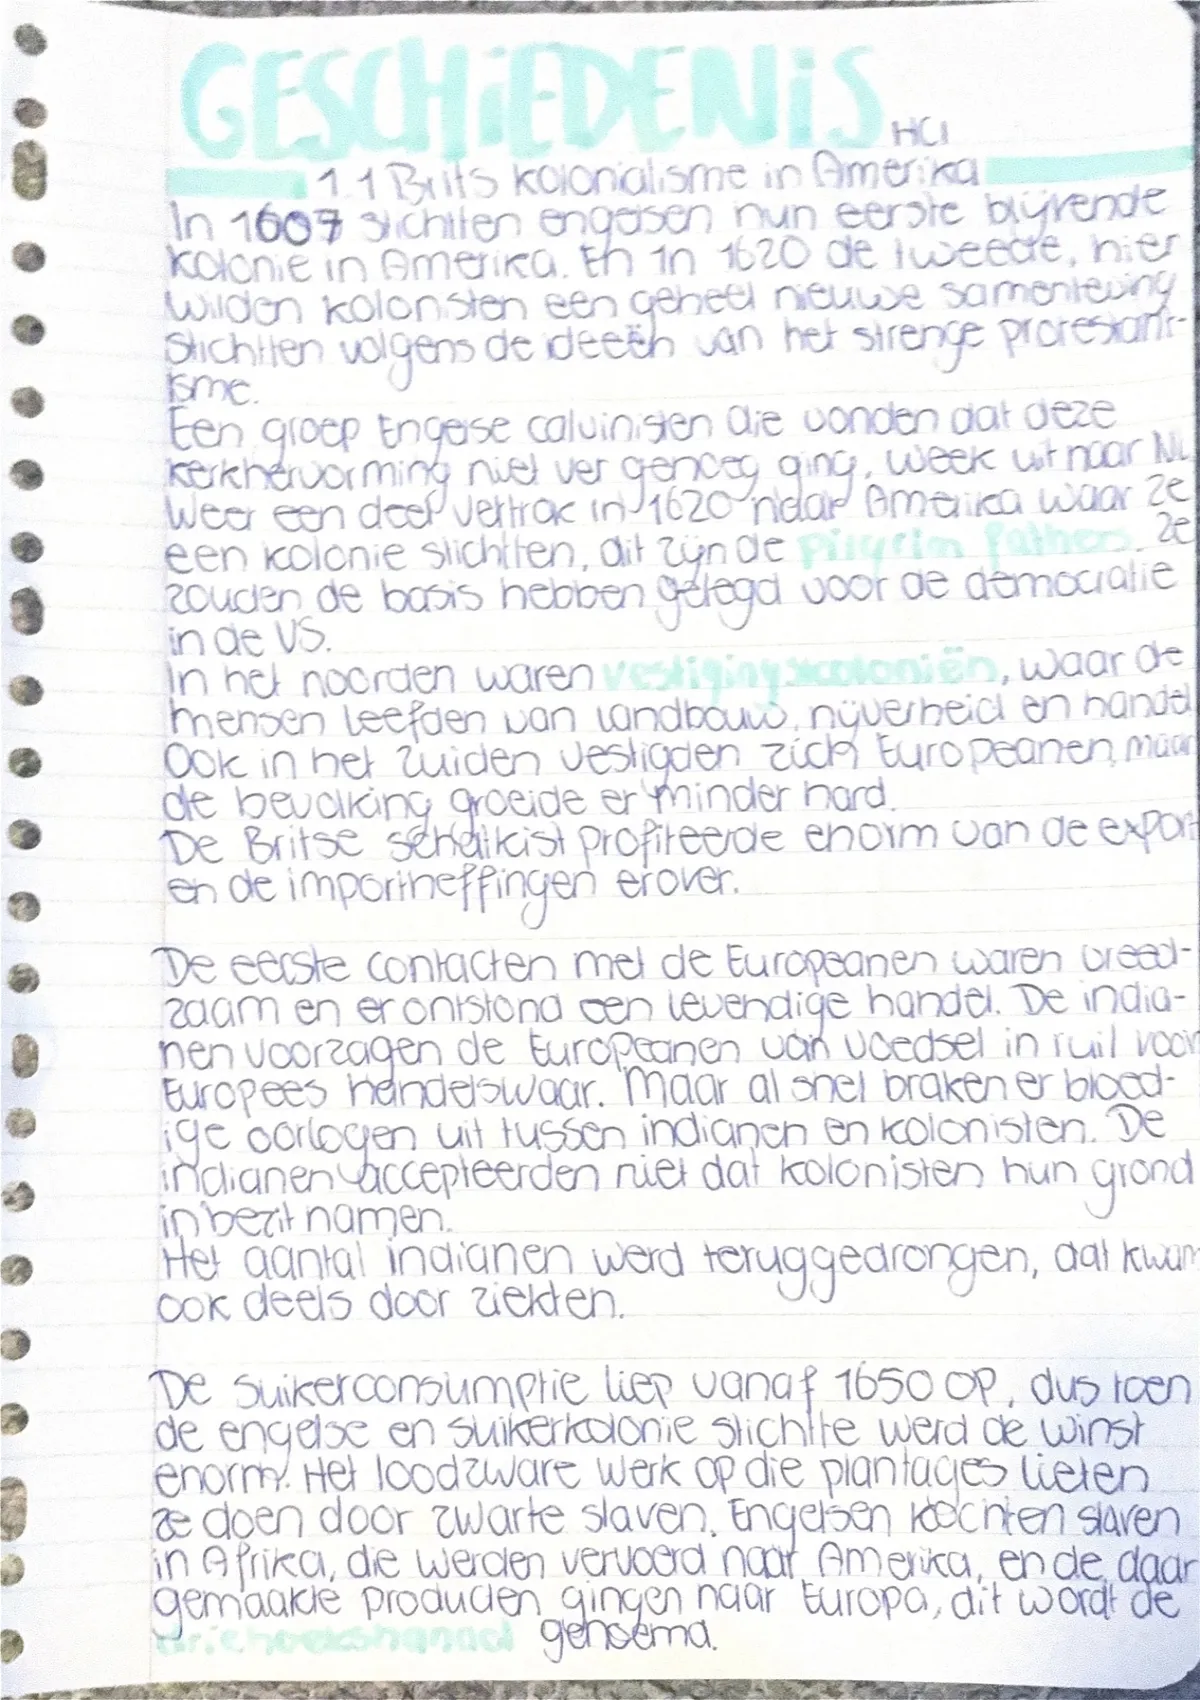 GESCHIEDENIS HC1
1.1 Brits kolonialisme in Amerika
In 1607 stichtten engelsen hun eerste blijvende
kolonie in Amerika. En in 1620 de tweede, hier
wilden kolonisten een geheel nieuwe samenleving
stichtten volgens de ideeën van het strenge protestant-
isme.
Een groep Engelse calvinisten die vonden dat deze
kerkhervorming niet ver genoeg ging, week uit naar NL
Weer een deel vertrok in 1620 naar Amerika waar ze
een kolonie stichtten, dit zijn de pilgrim fathers. Ze
zouden de basis hebben gelegd voor de democratie
in de VS.
In het noorden waren vestigingskoloniën, waar de
mensen leefden van landbouw, nijverheid en handel
Ook in het Zuiden vestigden zich Europeanen, maar
de bevolking groeide er minder hard.
De Britse schatkist profiteerde enorm van de export
en de importheffingen erover.
De eerste contacten met de Europeanen waren vreed-
zaam en er ontstond een levendige handel. De india-
nen voorzagen de Europeanen van voedsel in ruil voor
Europees handelswaar. Maar al snel braken er bloed-
ige oorlogen uit tussen indianen en kolonisten. De
indianen accepteerden niet dat kolonisten hun grond
in bezit namen.
Het aantal indianen werd teruggedrongen, dat kwam
ook deels door ziekten.
De suikerconsumptie liep vanaf 1650 op, dus toen
de engelse en suikerkolonie stichtte werd de winst
enorm. Het loodzware werk op die plantages lieten
ze doen door zwarte slaven. Engelsen kochten slaven
in Afrika, die werden vervoerd naar Amerika, en de daar
gemaakte producten gingen naar Europa, dit wordt de
driehoekshandel genoemd.